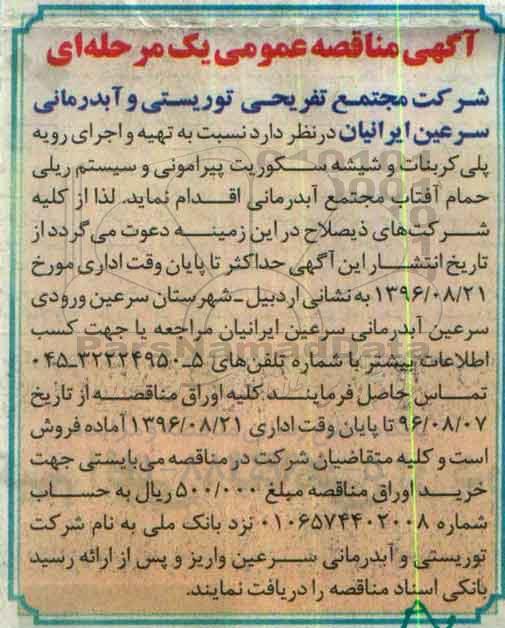 آگهی مناقصه عمومی یک مرحله‌ای
شرکت مجتمع تفریحی توریستی و آبدرمانی
سرعین ایرانیان در نظر دارد نسبت به تهیه و اجرای رویه
پلی کربنات و شیشه سکوریت پیرامونی و سیستم ریلی
حمام آفتاب مجتمع آبدرمانی اقدام نماید. لذا از کلیه
شرکت‌های ذیصلاح در این زمینه دعوت می‌گردد از
تاریخ انتشار این آگهی حداکثر تا پایان وقت اداری مورخ
۱۳۹۶/۰۸/۲۱ به نشانی اردبیل ـ شهرستان سرعین ورودی
سرعین آبدرمانی سرعین ایرانیان مراجعه یا جهت کسب
اطلاعات بیشتر با شماره تلفن‌های ۵ـ۳۲۲۲۴۹۵۰ـ۰۴۵
تماس حاصل فرمایند. کلیه اوراق مناقصه از تاریخ
۹۶/۰۸/۰۷ تا پایان وقت اداری ۱۳۹۶/۰۸/۲۱ آماده فروش
است و کلیه متقاضیان شرکت در مناقصه می‌بایستی جهت
خرید اوراق مناقصه مبلغ ۵۰۰/۰۰۰ ریال به حساب
شماره ۰۱۰۶۵۷۴۴۰۲۰۰۸ نزد بانک ملی به نام شرکت
توریستی و آبدرمانی سرعین واریز و پس از ارائه رسید
بانکی اسناد مناقصه را دریافت نمایند.
ParsNamadData